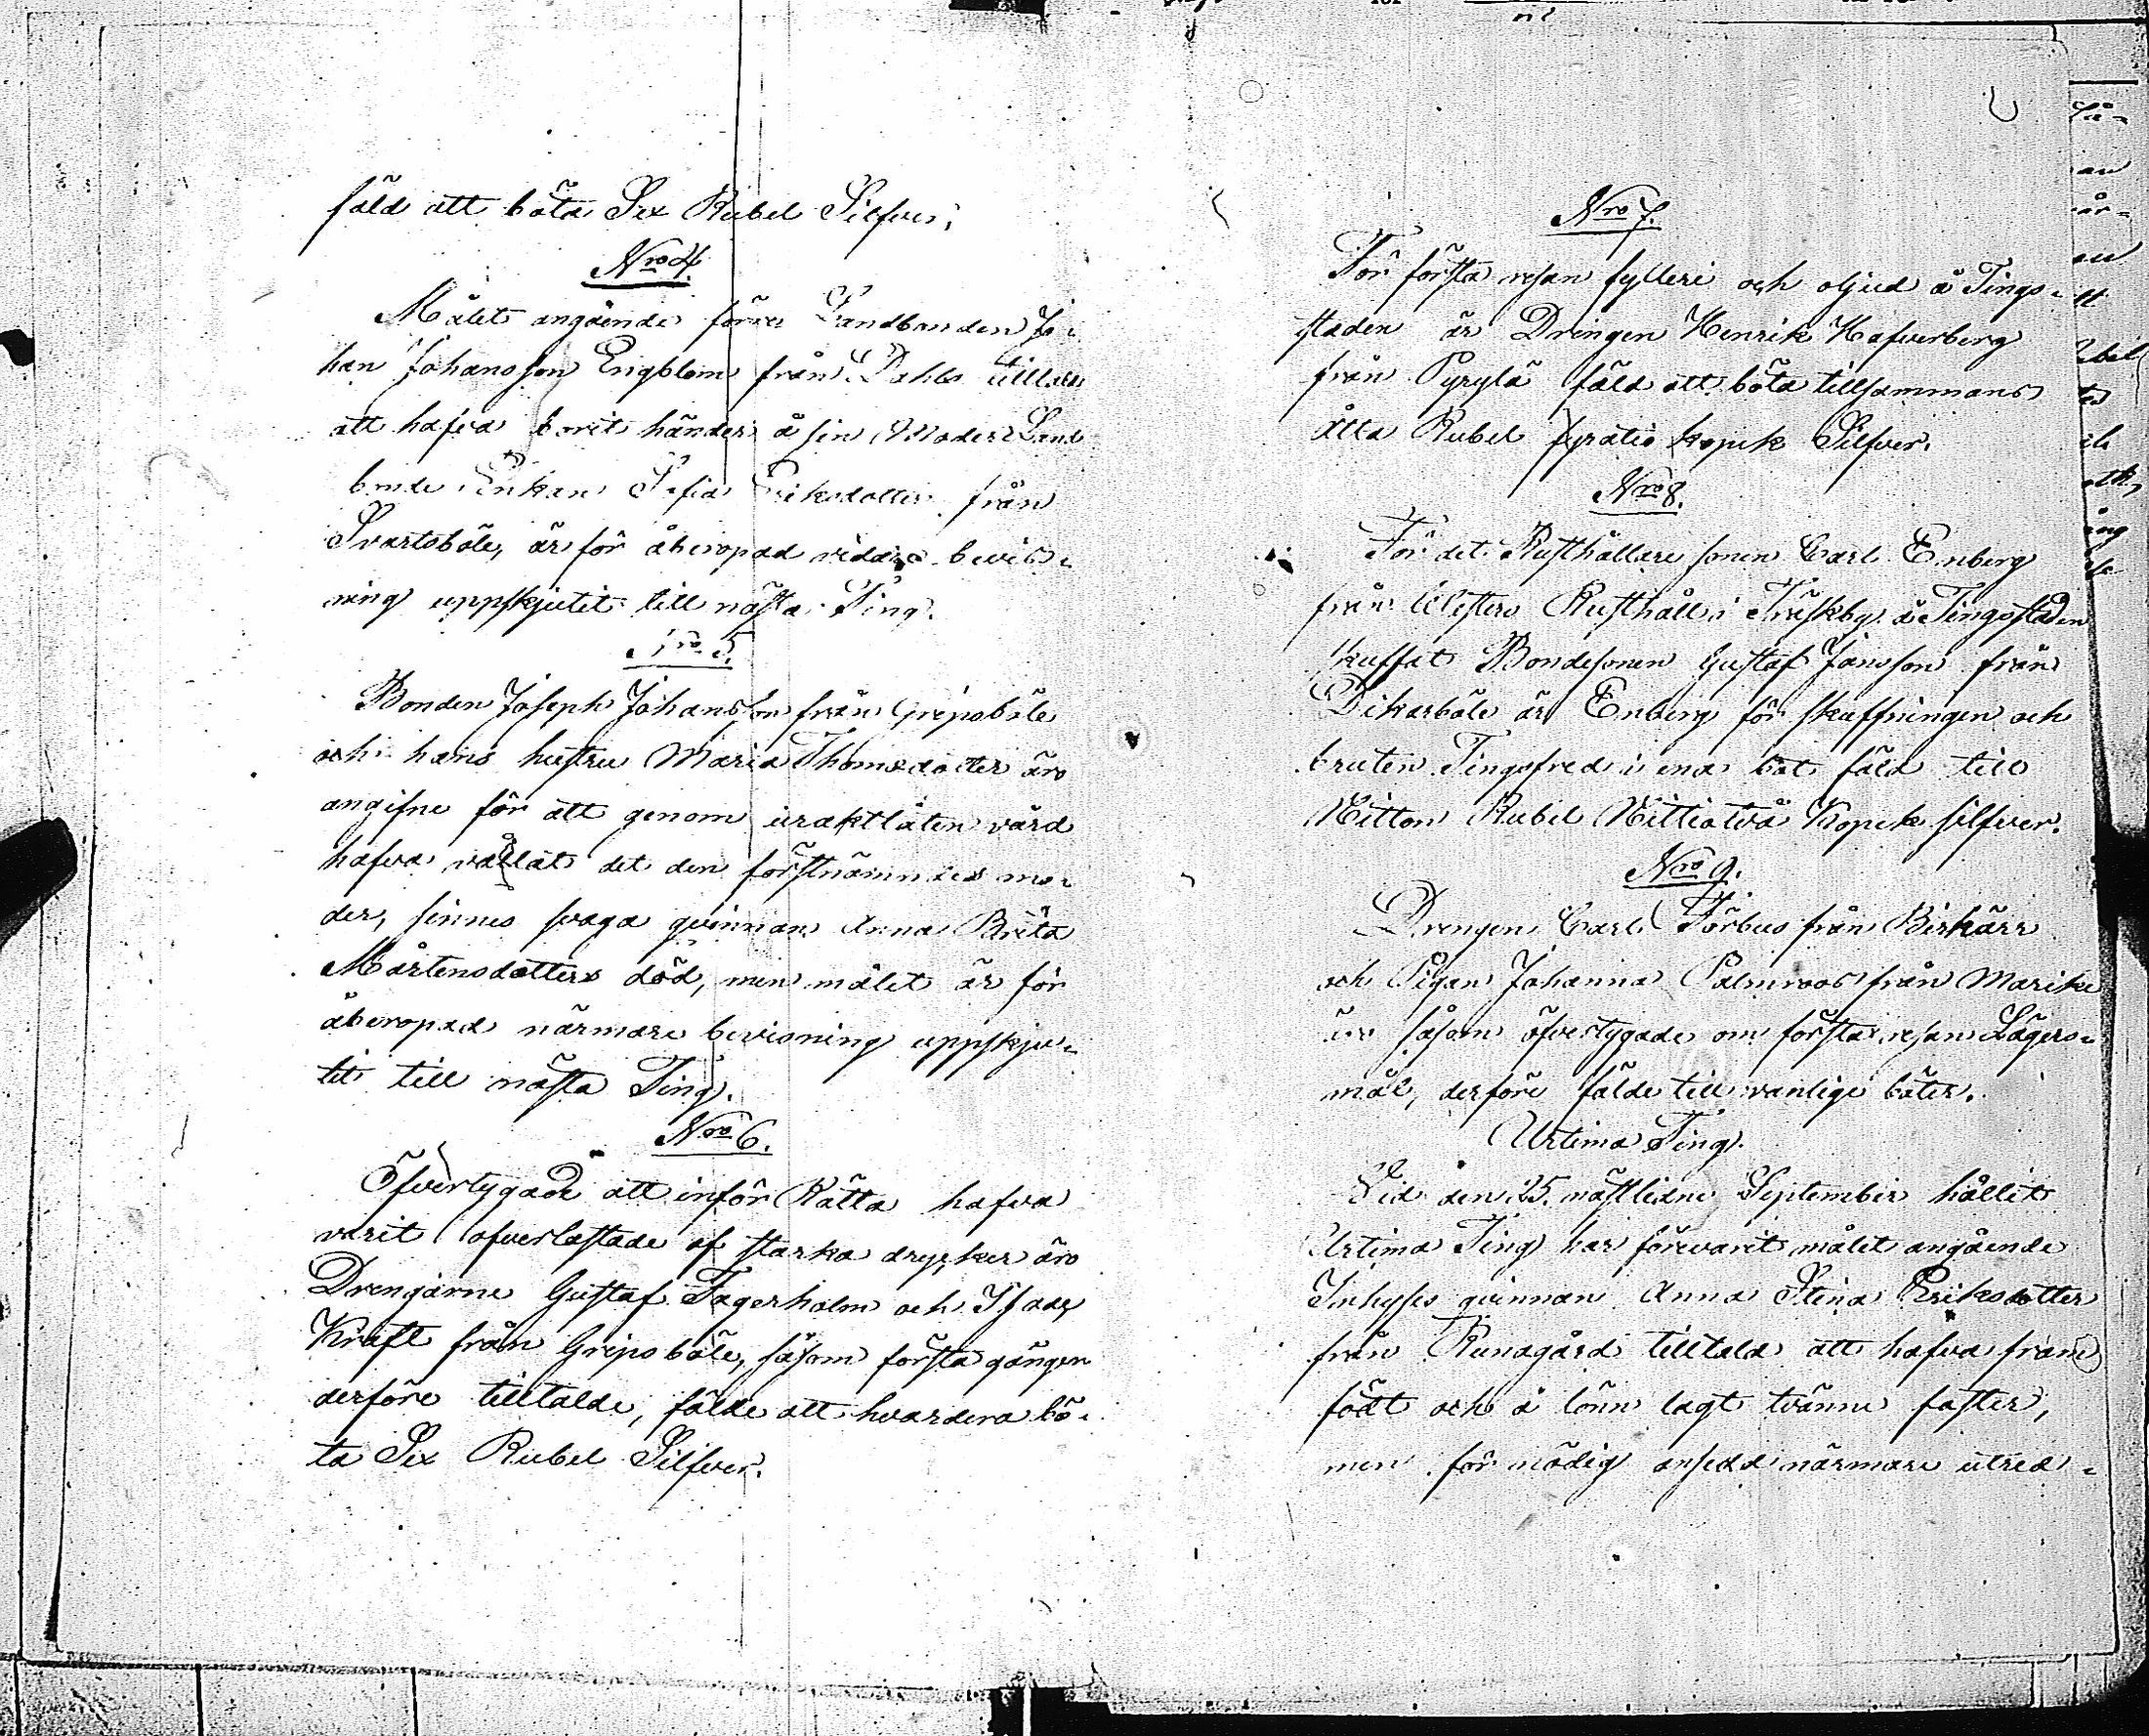 fäld att böta Sex Rubel Silfver;
Nro 4.
Målet angående förre Landbonden Jo-
han Johansson Engblom från Dahls tilltald
att hafva burit händer å sin Moder Land-
bonde Enkan Sofia Eriksdotter från
Svartsböle, är för åberopad vidare bevis-
ning uppskjutit till nästa Ting.
Nro 5.
Bonden Joseph Johansson från Gripsböle
och hans hustru Maria Thomasdotter äro
angifne för att genom uraktlåten vård
hafva vållat det den förstnämndes mo-
der, sinnes svaga qvinnan Anna Brita
Mårtensdotters död, men målet är för
åberopad närmare bevisning uppskju-
tit till nästa Ting.
Nro 6.
Öfvertygade att inför Rätta hafva
varit öfverlastade af starka drycker äro
Drengarne Gustaf Fagerholm och Isaac
Kraft från Gripsböle, såsom första gången
derföre tilltalde, fälde att hvardera bö-
ta Sex Rubel Silfver.
Nro 7.
För första resan fylleri och oljud å Tings-
staden är Drengen Henrik Hafverberg
från Pyrylä fäld att böta tillsammans
åtta Rubel fyratio kopek Silfver.
Nro 8.
För det Rusthållare sonen Carl Enberg
från Klefters Rusthåll i Träskby å Tingsstaden
skuffat Bondesonen Gustaf Jansson från
Dikarböle är Enberg för skuffningen och
bruten Tingsfred i ena bot fäld till
Nitton Rubel Nittiotvå Kopek silfver.
Nro 9.
Drengen Carl Förbus från Birkärr
och Pigan Johanna Palmroos från Marike
äro såsom öfvertygade om första resan Lägers-
mål, derföre fälde till vanlige böter.
Urtima Ting.
Vid den 25. nästlidne September hållit
Urtima Ting har förevarit målet angående
Inhyses qvinnan Anna Stina Eriksdotter
från Runagård tilltald att hafva fram
födt och å lönn lagt tvänne foster,
men för nödig ansedd närmare utred-